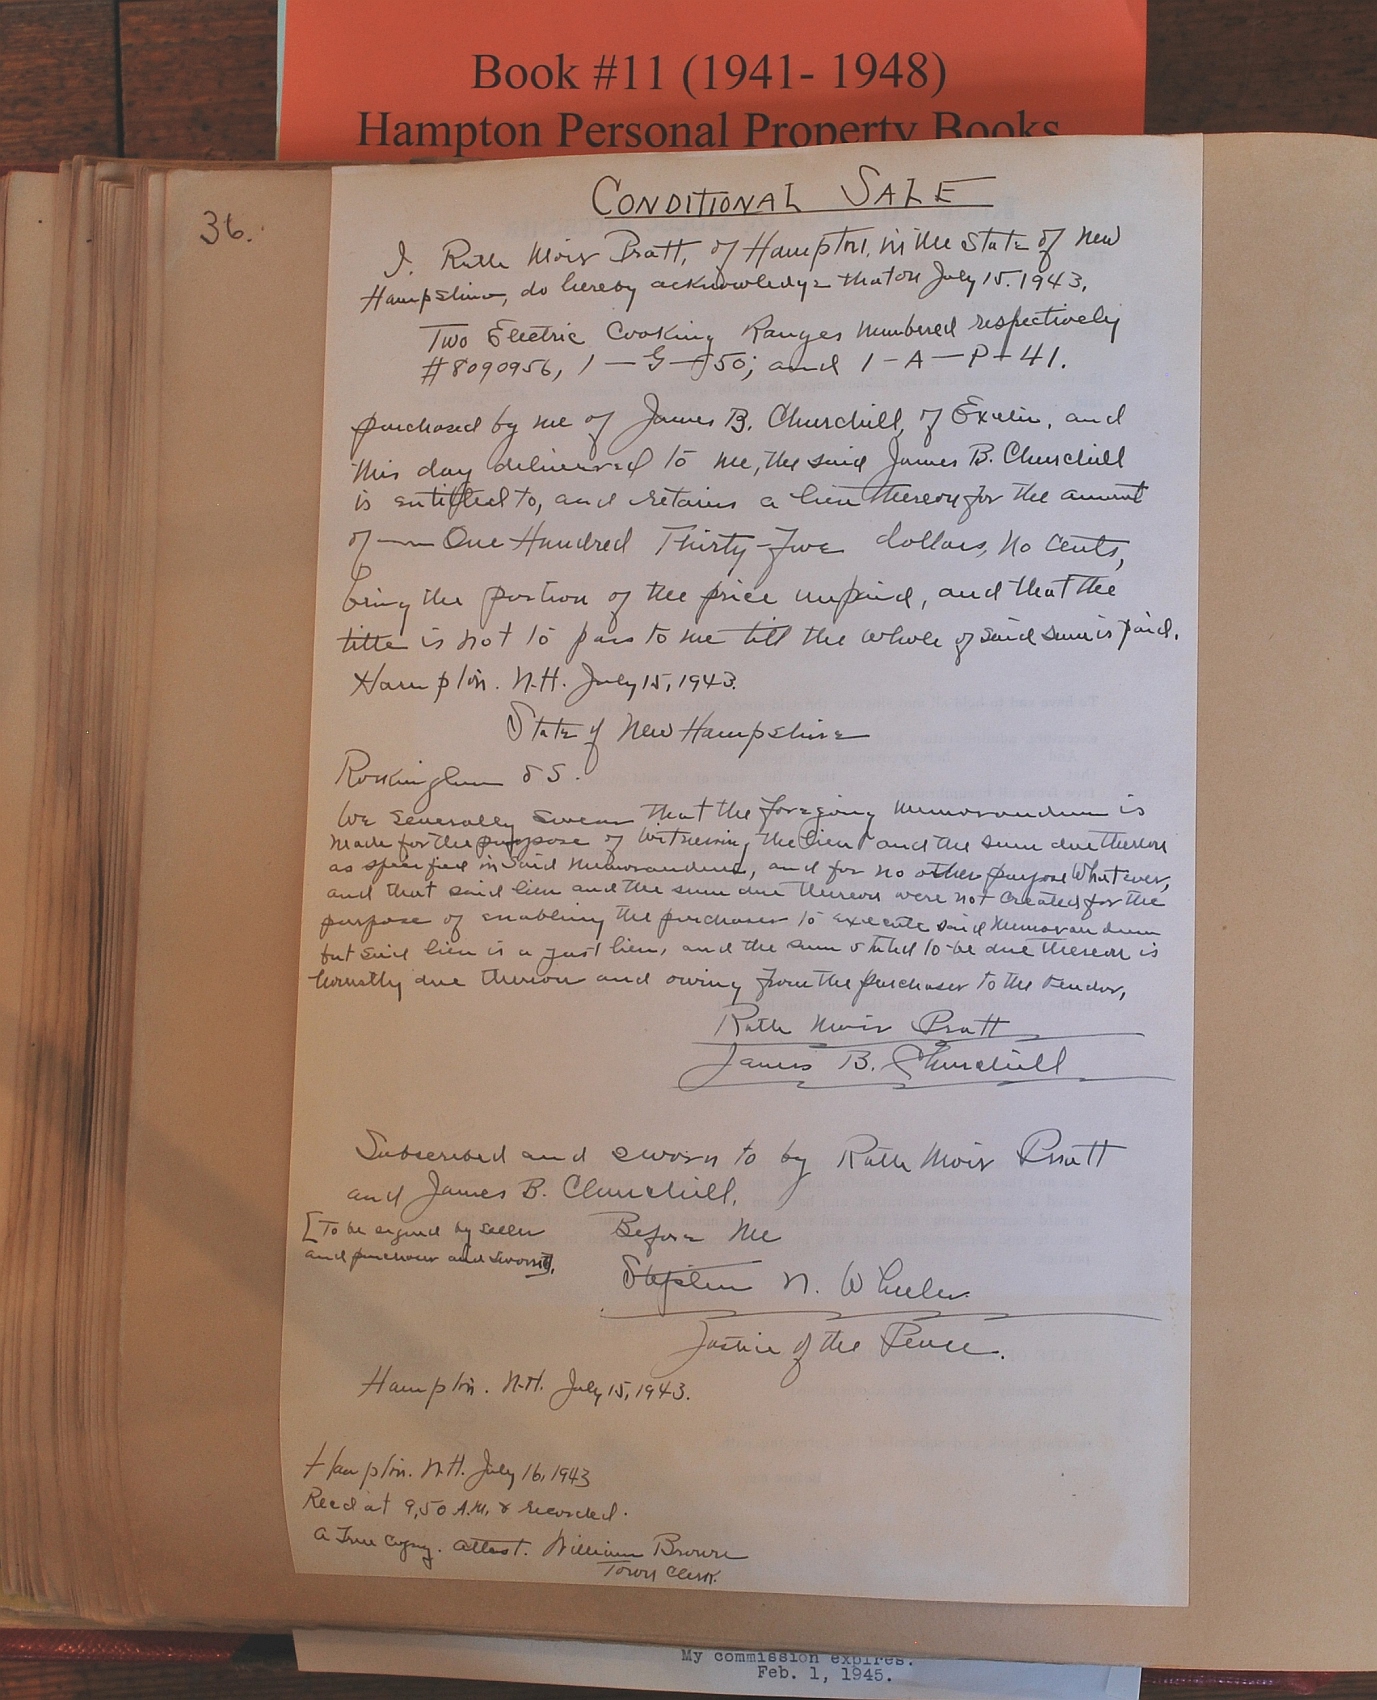 Book #11 (1941- 1948)
Hampton Personal Property Books
36.
CONDITIONAL SALE
I. Ruth Moir Pratt, of Hampton, in the State of New
Hampshire, do hereby acknowledge that on July 15. 1943.
Two Electric Cooking Ranges numbered respectively
#8090956, 1—G—J50; and 1-A—P-41.
purchased by me of James B. Churchill, of Exeter, and
this day delivered to me, the said James B. Churchill
is entitled to, and retains a lien thereon for the amount
of — One Hundred Thirty-five dollars, no cents,
being the portion of the price unpaid, and that the
title is not to pass to me till the whole of said sum is paid.
Hampton. N.H. July 15, 1943.
State of New Hampshire
Rockingham SS.
We severally swear that the foregoing memorandum is
made for the purpose of witnessing the lien and the sum due thereon
as specified in said memorandum, and for no other purpose whatever,
and that said lien and the sum due thereon were not created for the
purpose of enabling the purchaser to execute said memorandum
but said lien is a just lien, and the sum stated to be due thereon is
honestly due thereon and owing from the purchaser to the vendor,
Ruth Moir Pratt
James B. Churchill
Subscribed and sworn to by Ruth Moir Pratt
and James B. Churchill.
[To be signed by seller
and purchaser and sworn to].
Before Me
Stephen N. Wheeler
Justice of the Peace.
Hampton. N.H. July 15, 1943.
Hampton. N.H. July 16, 1943
Recd at 9,50 A.M. & recorded.
A True Copy. Attest. William Brown
Town Clerk.
My commission expires.
Feb. 1, 1945.